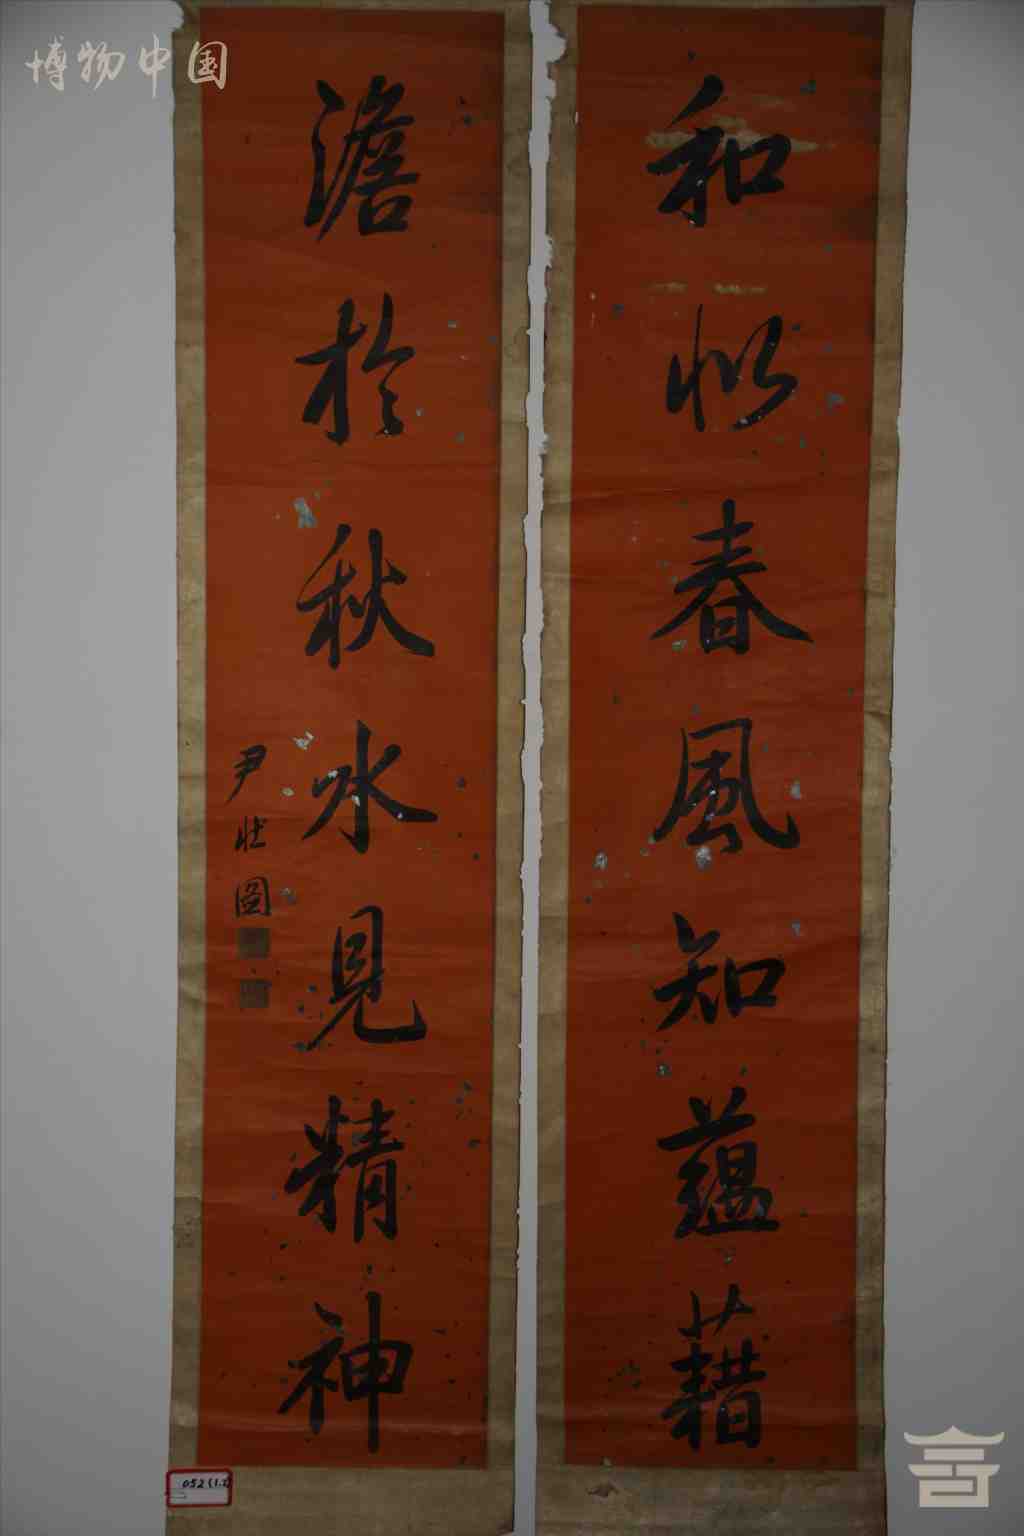 博物中国
和似春風知蘊藉
澹於秋水見精神
尹壯圖
052(1.2)